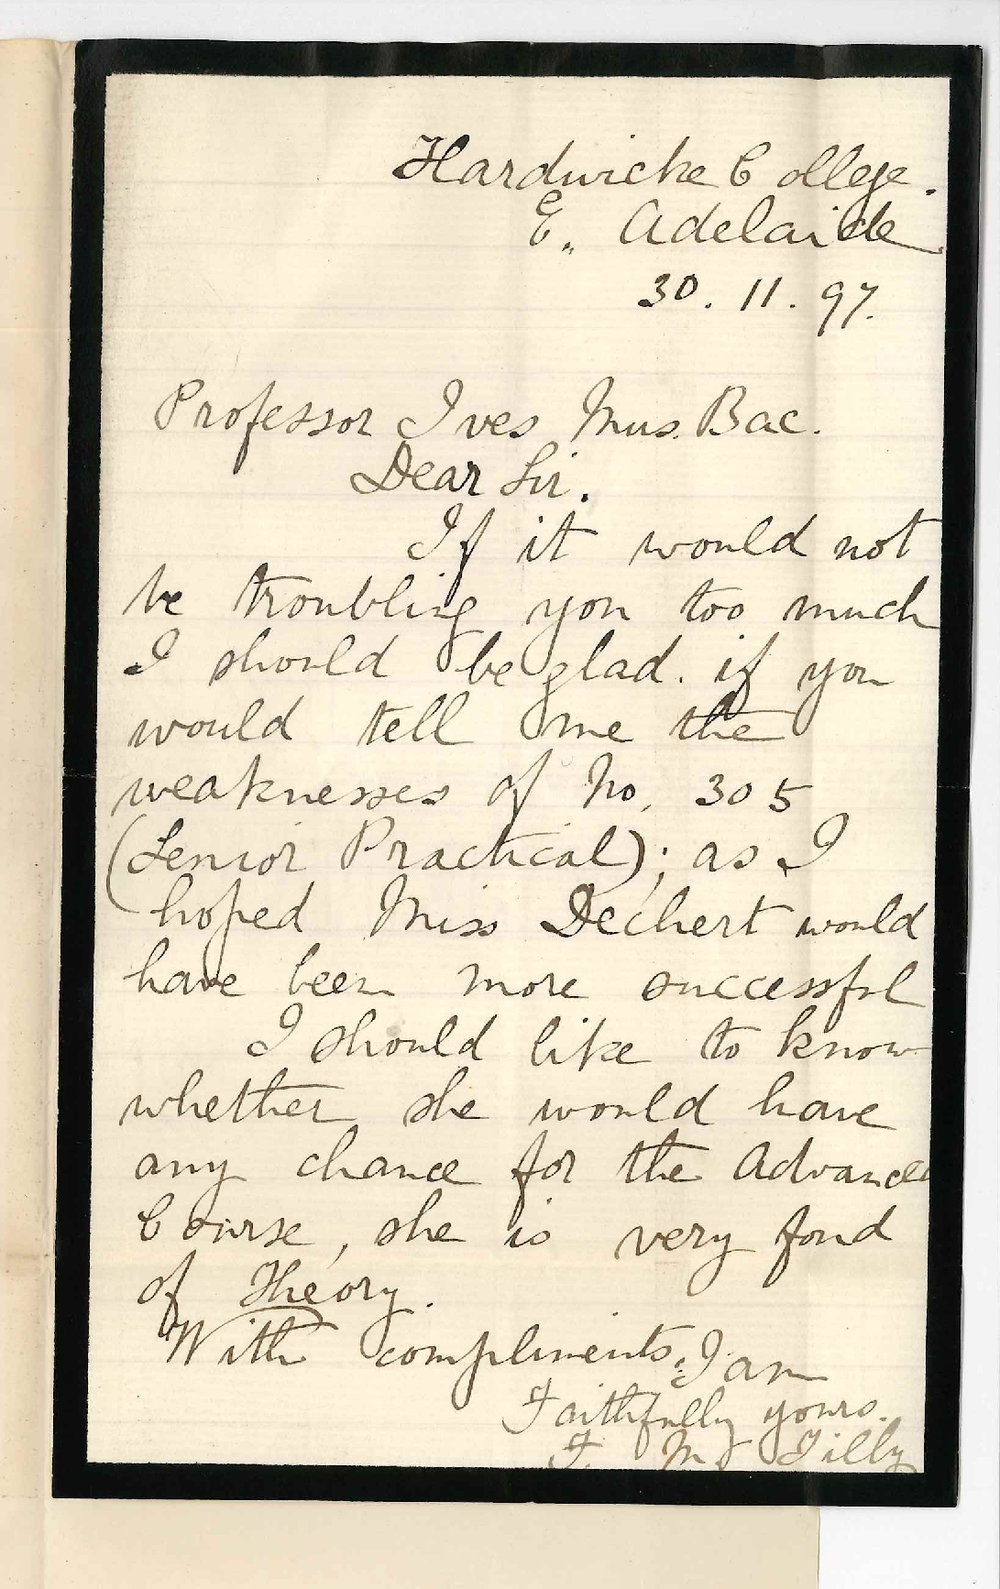 Hardwicke College.
E. Adelaide
30. 11. 97.
Professor Ives Mus. Bac.
Dear Sir.
If it would not
be troubling you too much
I should be glad. if you
would tell me the
weaknesses of No. 305
(Senior Practical); as I
hoped Miss Dechert would
have been more successful
I should like to know
whether she would have
any chance for the Advanced
Course, she is very fond
of Theory.
With compliments, I am
Faithfully yours.
F. M. Tilly